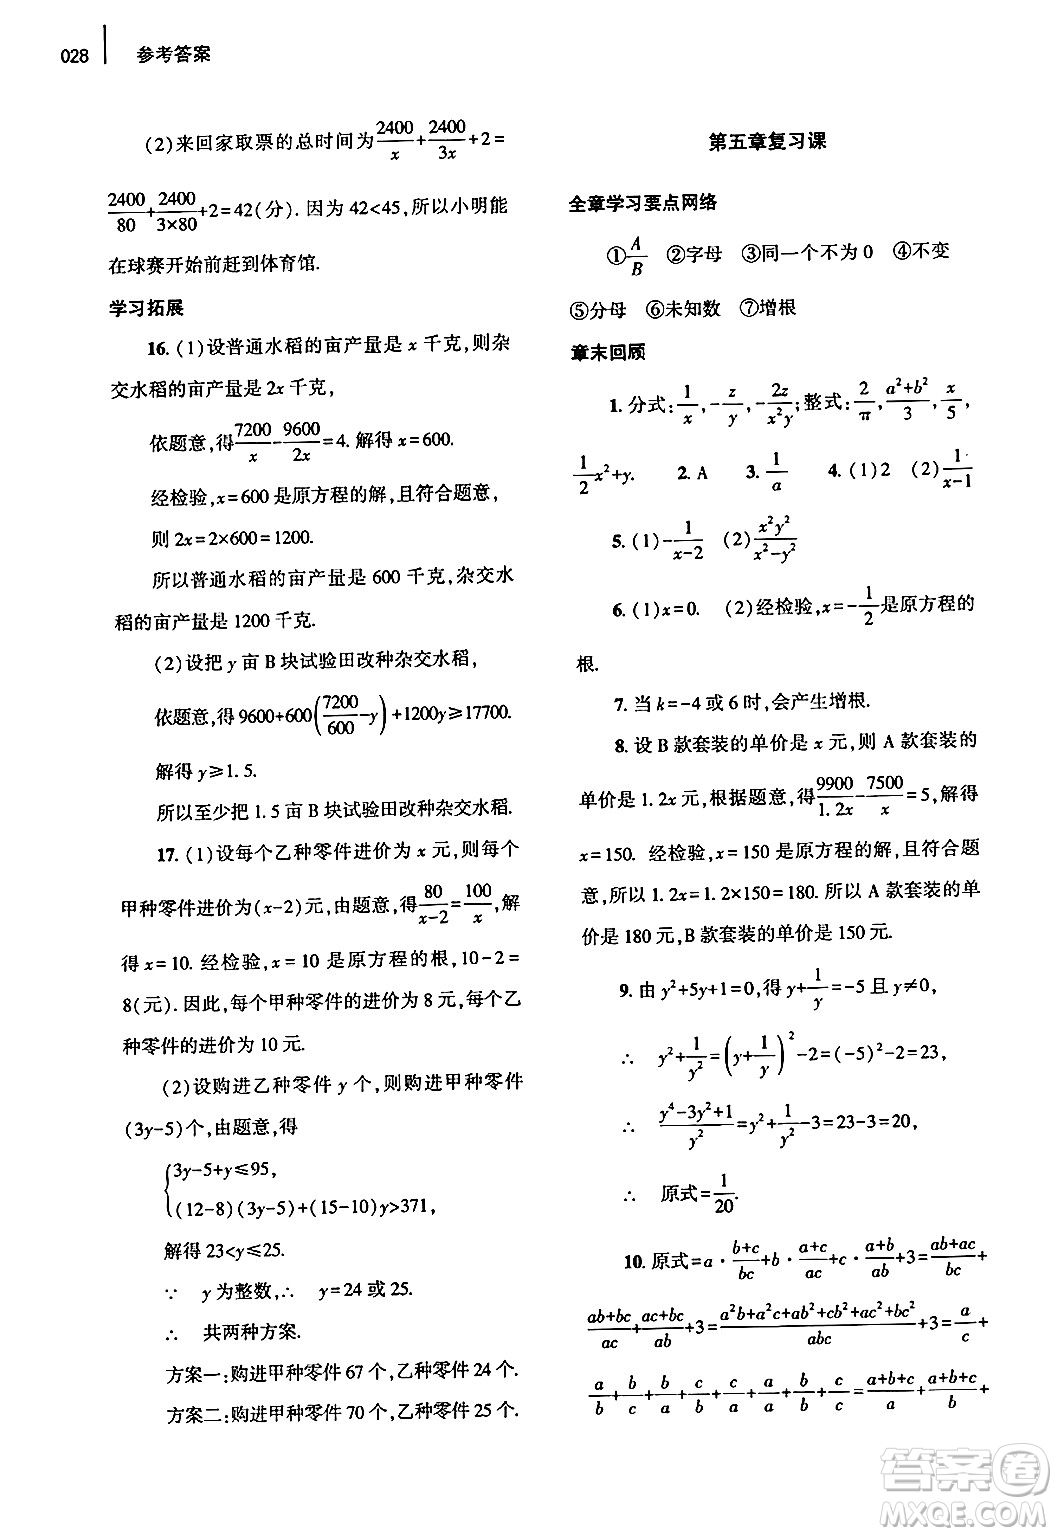 028 参考答案
(2)来回家取票的总时间为2400/x+2400/3x+2=
2400/80+2400/3×80+2=42(分).因为42<45,所以小明能
在球赛开始前赶到体育馆.
学习拓展
16. (1)设普通水稻的亩产量是x千克,则杂
交水稻的亩产量是2x千克,
依题意,得7200/x-9600/2x=4.解得x=600.
经检验,x=600是原方程的解,且符合题意,
则2x=2×600=1200.
所以普通水稻的亩产量是600千克,杂交水
稻的亩产量是1200千克.
(2)设把y亩B块试验田改种杂交水稻,
依题意,得9600+600(7200/600-y)+1200y≥17700.
解得y≥1.5.
所以至少把1.5亩B块试验田改种杂交水稻.
17. (1)设每个乙种零件进价为x元,则每个
甲种零件进价为(x-2)元,由题意,得80/(x-2)=100/x,解
得x=10.经检验,x=10是原方程的根,10-2=
8(元).因此,每个甲种零件的进价为8元,每个乙
种零件的进价为10元.
(2)设购进乙种零件y个,则购进甲种零件
(3y-5)个,由题意,得
{3y-5+y≤95,
(12-8)(3y-5)+(15-10)y>371,
解得23<y≤25.
∵ y为整数,∴ y=24或25.
∴ 共两种方案.
方案一:购进甲种零件67个,乙种零件24个.
方案二:购进甲种零件70个,乙种零件25个.
第五章复习课
全章学习要点网络
①A/B ②字母 ③同一个不为0 ④不变
⑤分母 ⑥未知数 ⑦增根
章末回顾
1. 分式:1/x,-z/y,-2z/x²y;整式:2/π,(a²+b²)/3,x/5,
1/2x²+y. 2. A 3. 1/a 4. (1)2 (2)1/(x-1)
5. (1)-1/(x-2) (2)x²y²/(x²-y²)
6. (1)x=0. (2)经检验,x=-1/2是原方程的
根.
7. 当k=-4或6时,会产生增根.
8. 设B款套装的单价是x元,则A款套装的
单价是1.2x元,根据题意,得9900/1.2x-7500/x=5,解得
x=150. 经检验,x=150是原方程的解,且符合题
意,所以1.2x=1.2×150=180.所以A款套装的单
价是180元,B款套装的单价是150元.
9. 由y²+5y+1=0,得y+1/y=-5且y≠0,
∴ y²+1/y²=(y+1/y)²-2=(-5)²-2=23,
∴ (y⁴-3y²+1)/y²=y²+1/y²-3=23-3=20,
∴ 原式=1/20.
10. 原式=a·(b+c)/bc+b·(a+c)/ac+c·(a+b)/ab+3=(ab+ac)/bc+
(ab+bc)/ac+(ac+bc)/ab+3=(a²b+a²c+ab²+cb²+ac²+bc²)/abc+3=a/c+
a/b+b/c+b/a+c/b+c/a+a/a+b/b+c/c=(a+b+c)/a+(a+b+c)/b+
答案卷
MXQE.COM